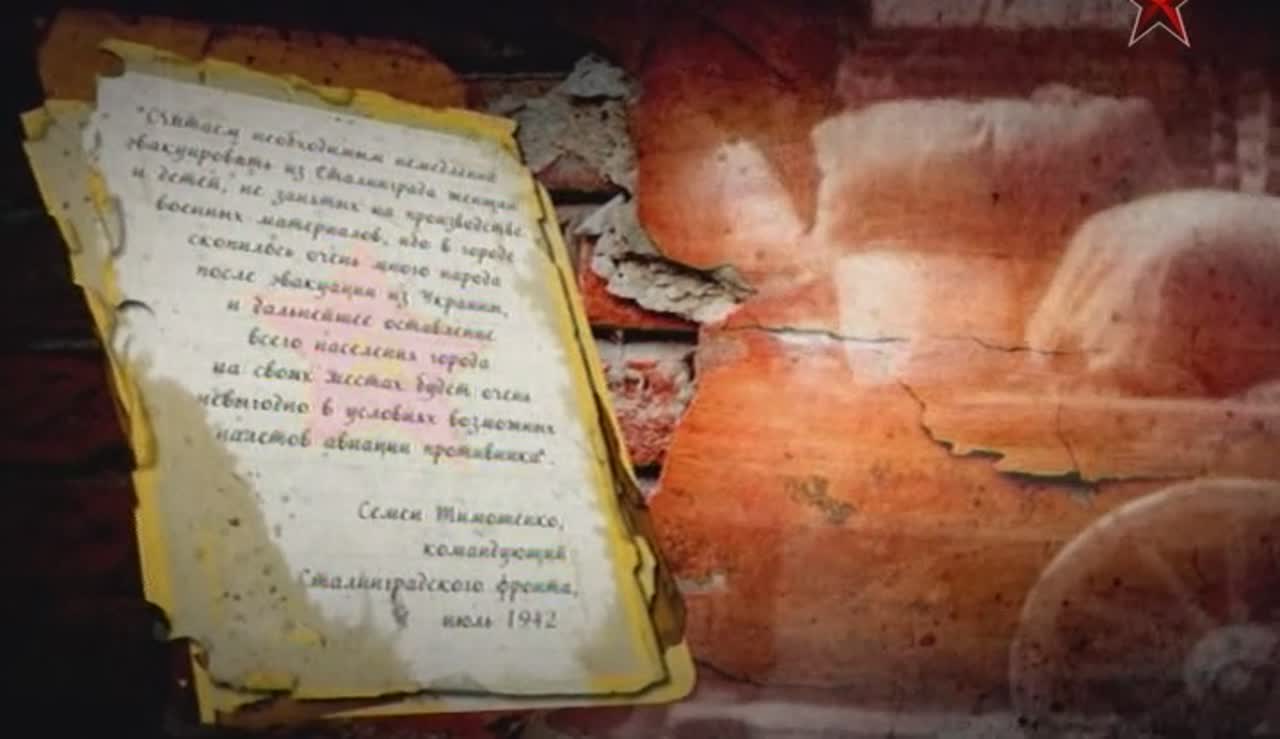 "Считаем необходимым немедленно
эвакуировать из Сталинграда женщин
и детей, не занятых на производстве
военных материалов, ибо в городе
скопилось очень много народа
после эвакуации из Украины,
и дальнейшее оставление
всего населения города
на своих местах будет очень
невыгодно в условиях возможных
налетов авиации противника".
Семен Тимошенко,
командующий
Сталинградского фронта,
июль 1942